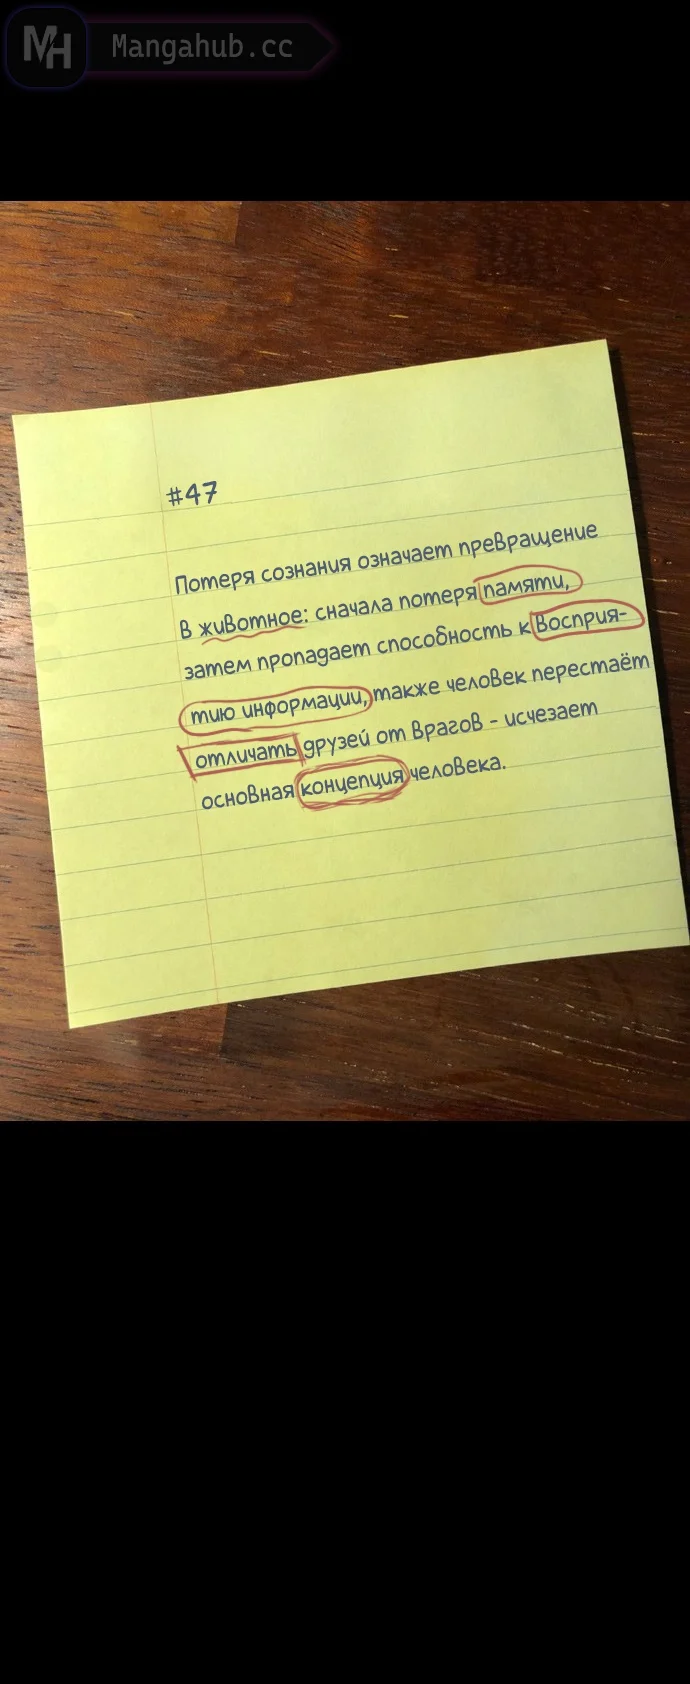 MH Mangahub.cc
#47
Потеря сознания означает превращение
в животное: сначала потеря памяти,
затем пропадает способность к восприя-
тию информации, также человек перестаёт
отличать друзей от врагов - исчезает
основная концепция человека.